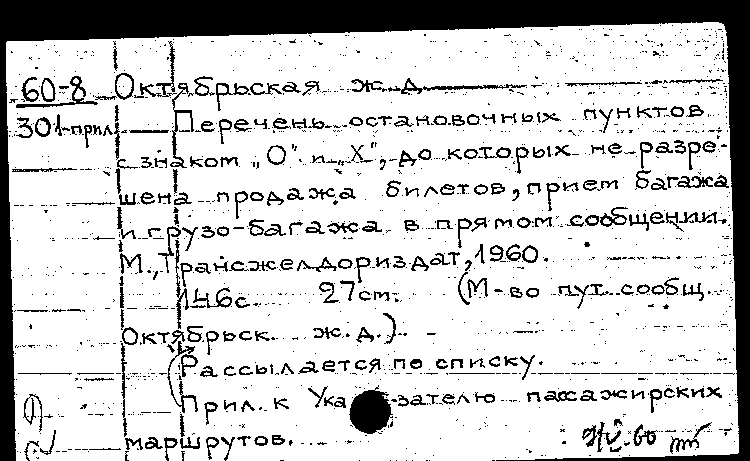 60-8 Октябрьская ж.д.
301-прил. Перечень остановочных пунктов
с знаком „О" и „Х", до которых не разре-
шена продажа билетов, прием багажа
и грузо-багажа в прямом сообщении.
М., Трансжелдориздат, 1960.
146с. 27см. (М-во пут. сообщ.
Октябрьск. ж.д.).
Рассылается по списку.
Прил. к Ука-зателю пассажирских
маршрутов.